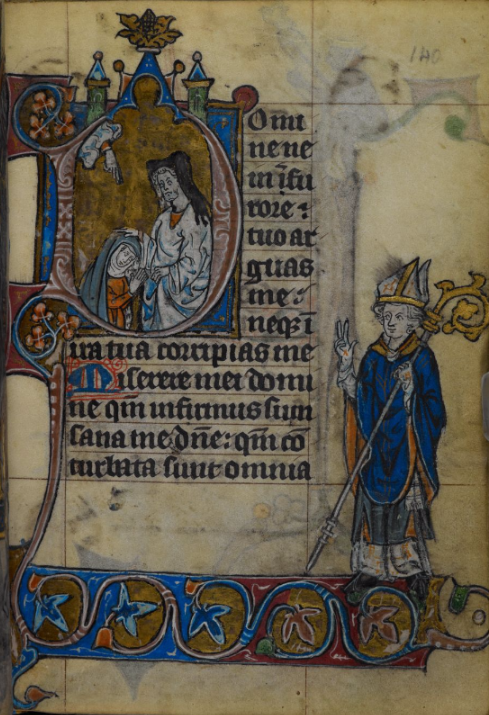 140
Domi
ne ne
in ĩ fu
rore :
tuo ar
guas
me :
neqʒ ĩ
ira tua corripias me
Miserere mei domi
ne qm̃ infirmus sum
sana me dñe : qm̃ cõ
turbata sunt omnia